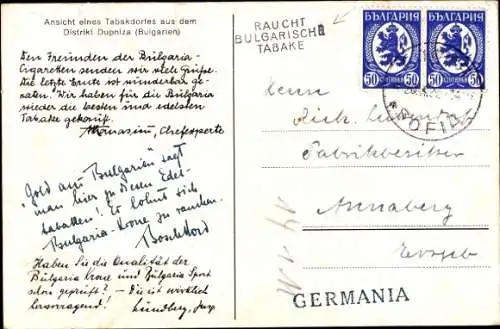 Ansicht eines Tabakdorfes aus dem
Distrikt Dupniza (Bulgarien)
Den Freunden der Bulgaria-
Cigaretten senden wir viele Grüsse.
Die letzte Ernte ist wunderbar ge-
raten. Wir haben für die Bulgaria
wieder die besten und edelsten
Tabake gekauft.
Athanasiu, Chefexperte
"Gold aus Bulgarien" sagt
man hier zu diesen Edel-
tabaken! Es lohnt sich
Bulgaria-Krone zu rauchen.
Haben Sie die Qualität der
Bulgaria Krone und Bulgaria Sport
schon geprüft? - Sie ist wirklich
hervorragend! Lundberg,
RAUCHT
BULGARISCHE
TABAKE
БЪЛГАРИЯ БЪЛГАРИЯ
50 СТОТИНКИ 50 50 СТОТИНКИ 50
SOFIA
Herrn
Fabrikbesitzer
Annaberg
Erzgeb
GERMANIA